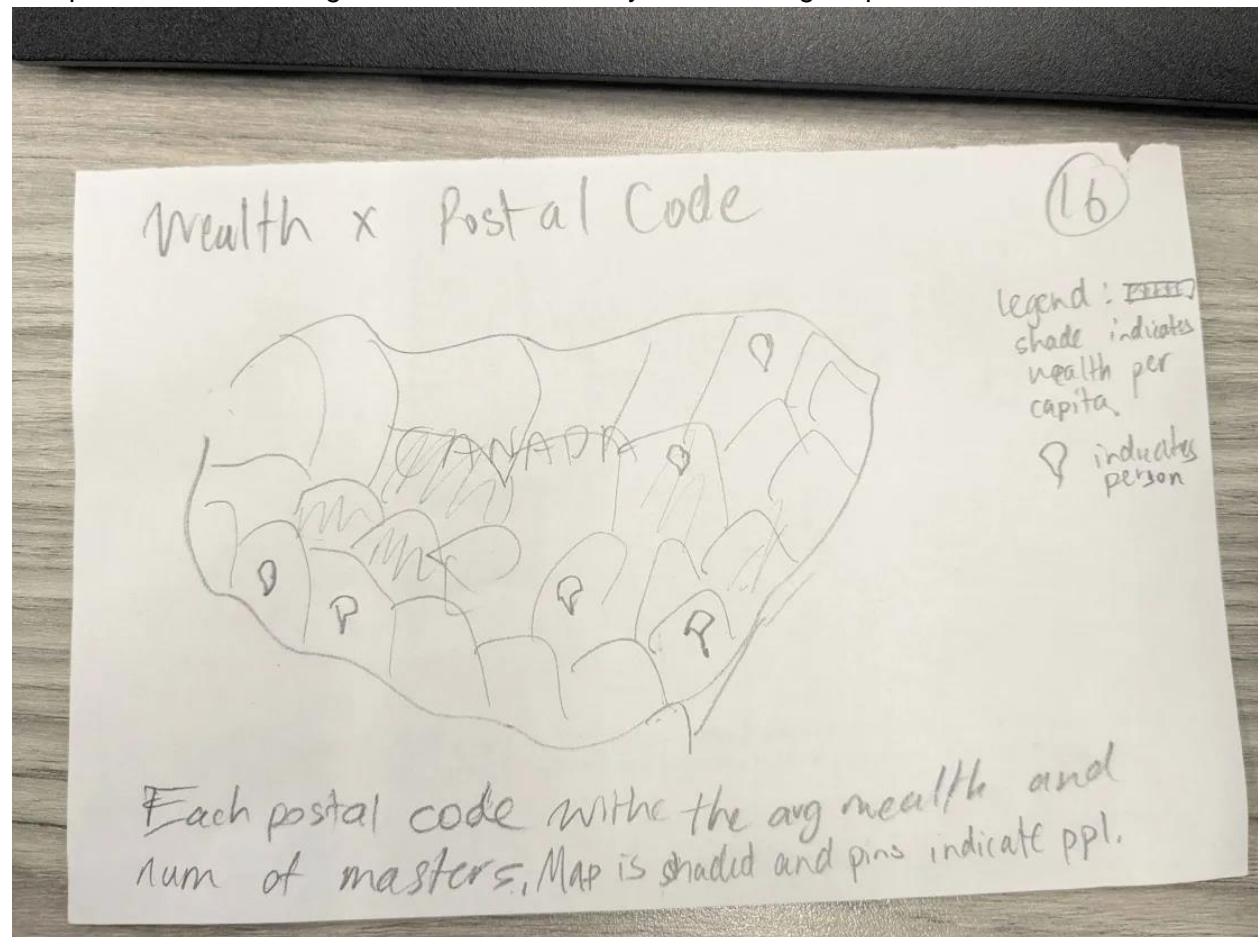 Wealth x Postal Code
16
legend:
shade indicates
wealth per
capita.
indicates
person
CANADA
Each postal code withe the avg wealth and
num of masters, Map is shaded and pins indicate ppl.